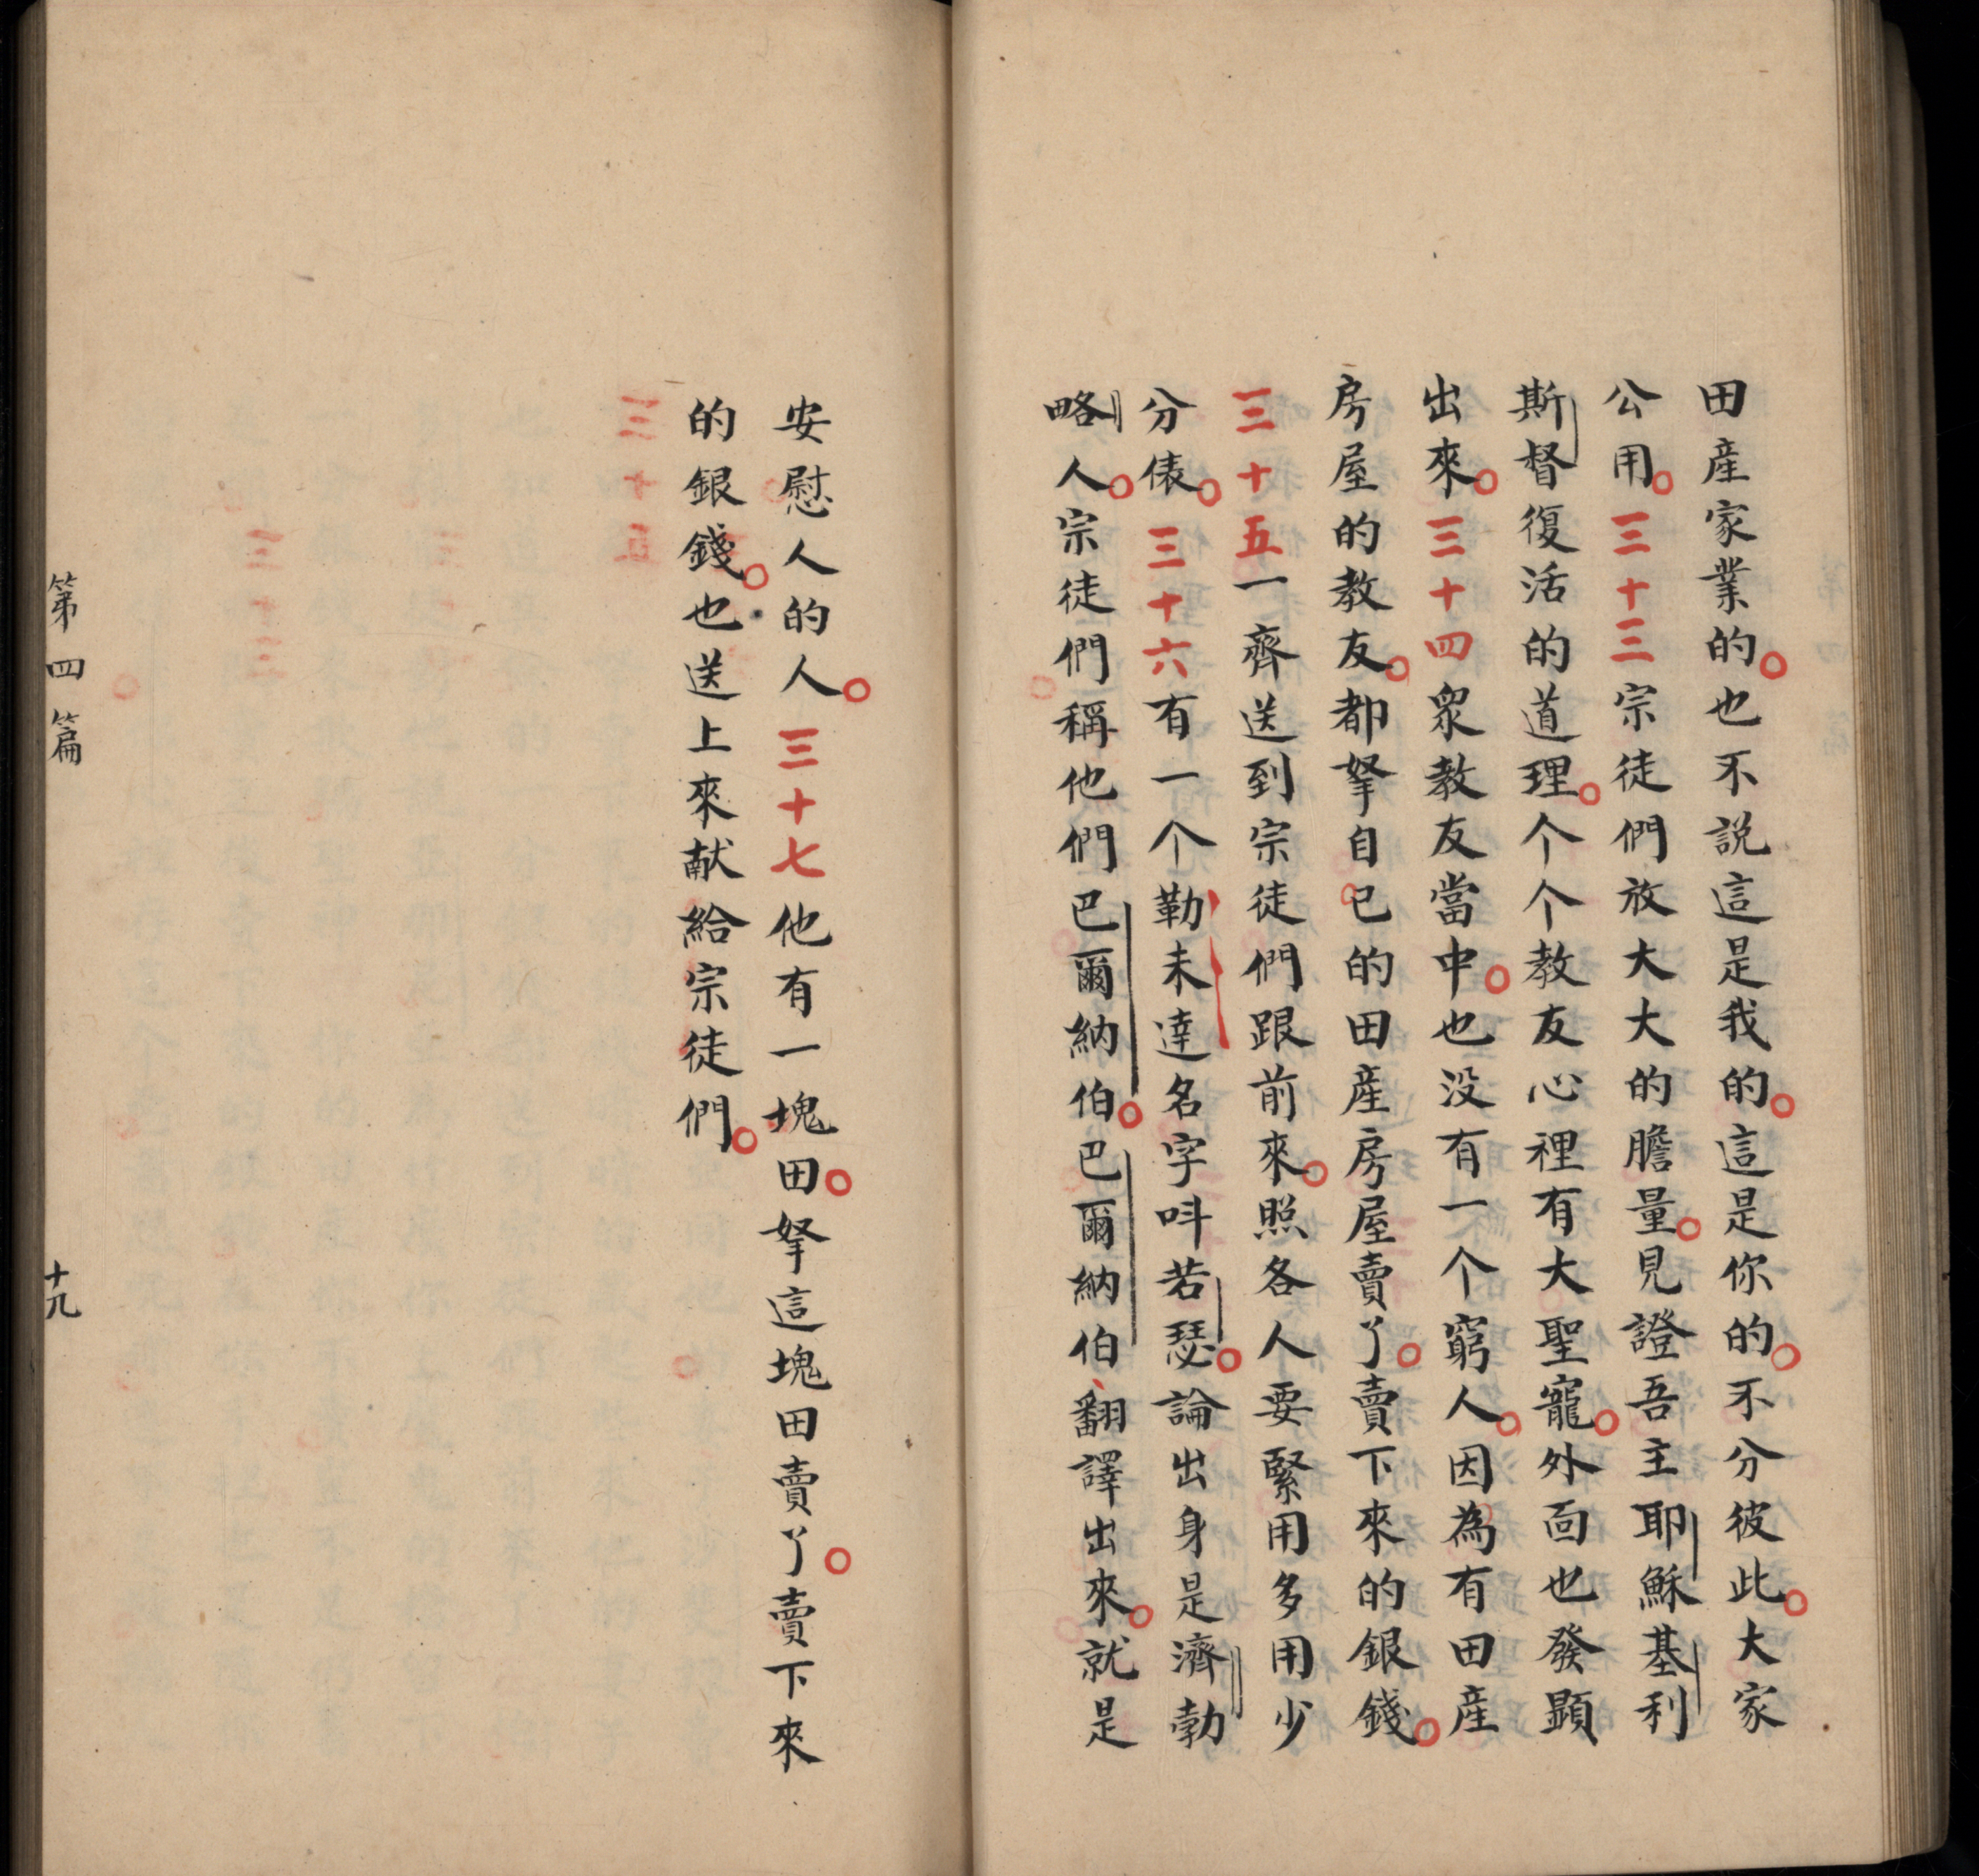 田産家業的。也不説這是我的。這是你的。不分彼此。大家
公用。三十三宗徒們放大大的膽量。見證吾主耶穌基利
斯督復活的道理。个个教友心裡有大聖寵。外面也發顕
出來。三十四衆教友當中。也没有一个窮人。因為有田産
房屋的教友。都拏自己的田産房屋賣了。賣下來的銀錢。
三十五一齊送到宗徒們跟前來。照各人要緊用多用少
分俵。三十六有一个勒未達名字呌若瑟。論出身是濟勃
略人。宗徒們稱他們巴爾納伯。巴爾納伯、翻譯出來。就是
安慰人的人。三十七他有一塊田。拏這塊田賣了。賣下來
的銀錢。也送上來献給宗徒們。
第四篇 十九